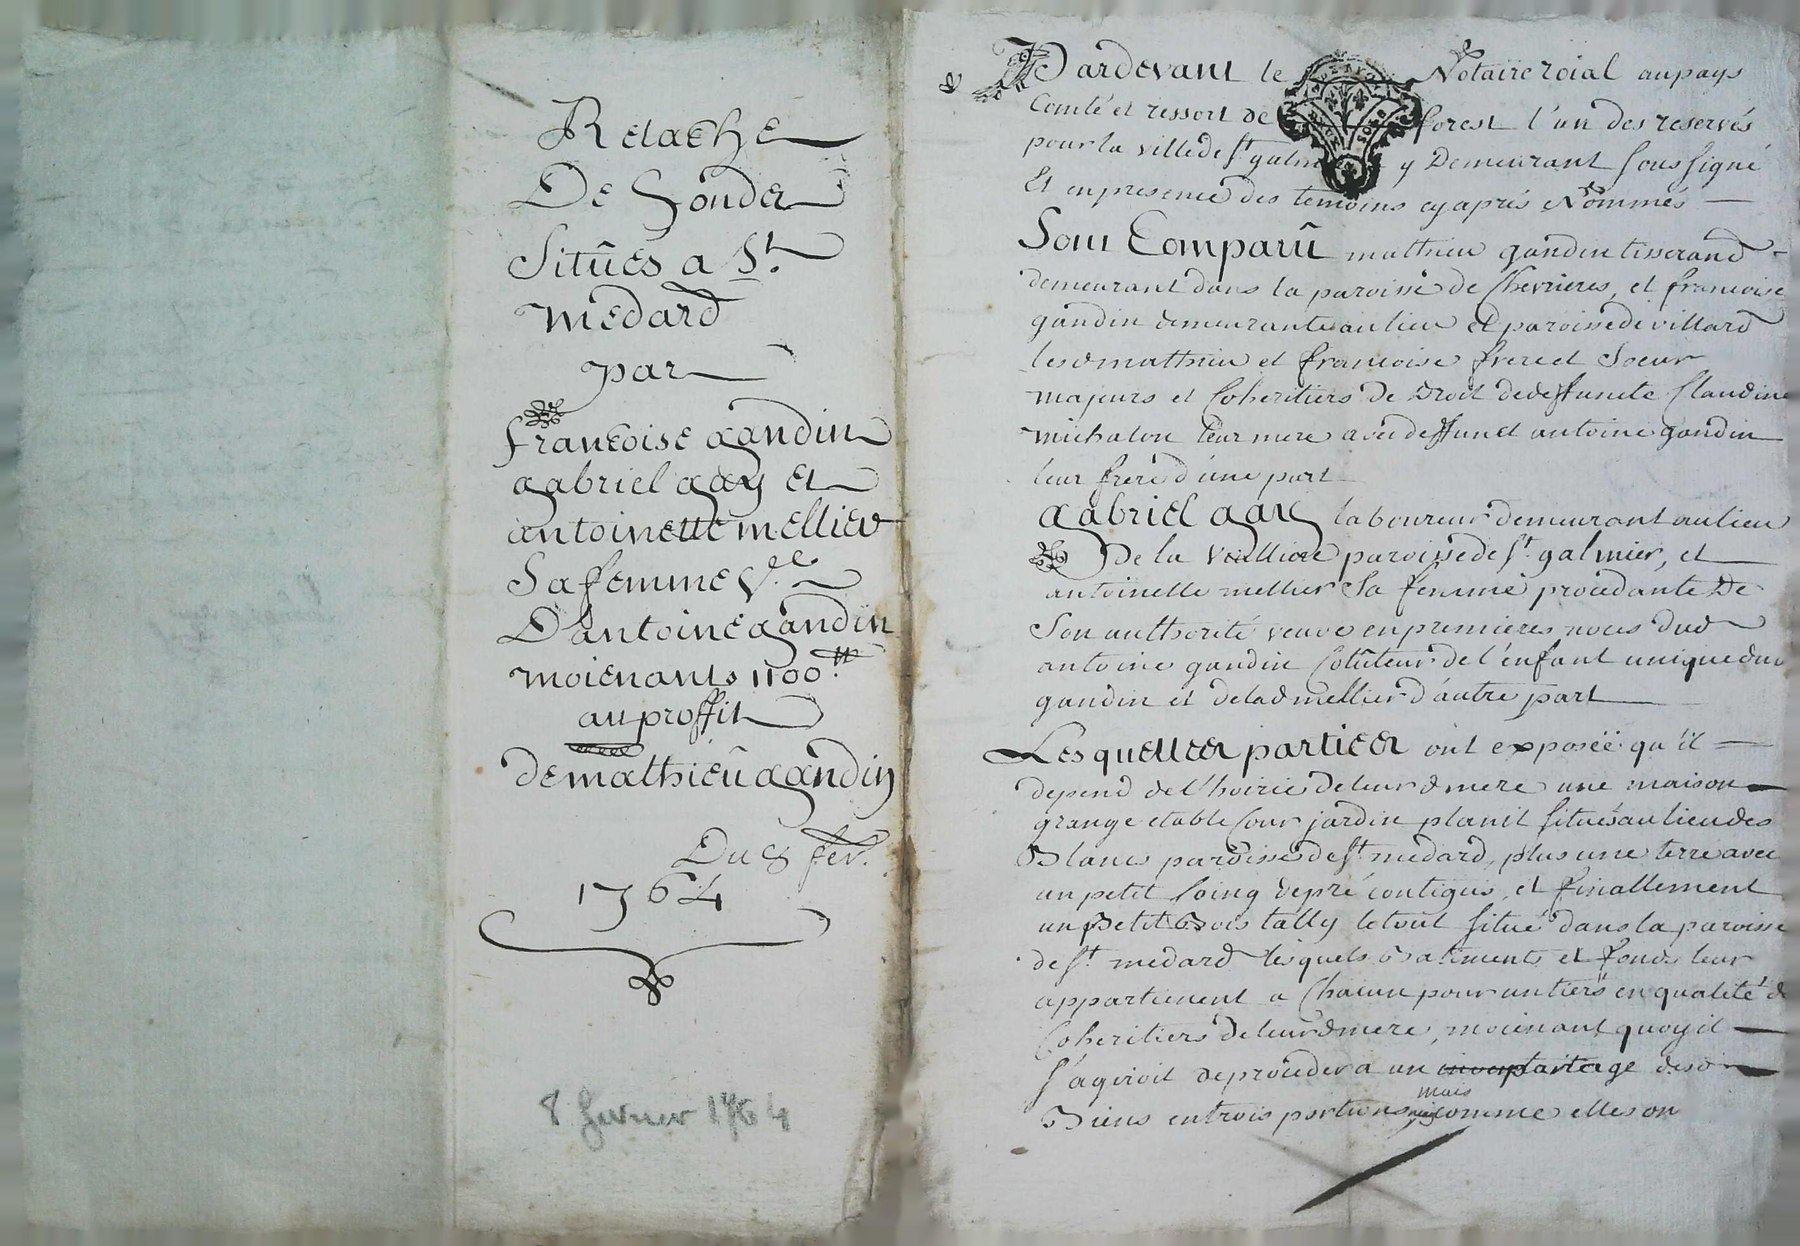 Relache
De fonder
Situés a St.
medard
par
francoise gandin
gabriel gay et
antoinette mellier
Sa femme v.e
D'antoine gandin
moienant 1100.tt
au proffit
de mathieu gandin
Du 8 fev.
1764
8 fevrier 1764
Pardevant le Notaire roial au pays
Comté et ressort de forest l'un des reservés
pour la ville de St galmier y Demeurant soussigné
Et en presence des temoins cy après Nommés
Sont Comparû mathieu gandin tisserand
demeurant dans la paroisse de Chevrieres, et francoise
gandin demeurante au lieu et paroisse de villard
lesd mathieu et francoise frere et Soeur
majeurs et Coheritiers de Droit de deffuncte Claudine
michalon leur mere avec deffunct antoine gandin
leur frere d'une part
gabriel gay laboureur demeurant au lieu
De la paroisse de St galmier, et
antoinette mellier Sa femme procedante De
Son authorité veuve en premieres noces dud
antoine gandin Cotuteur de l'enfant unique dud
gandin et de lad mellier d'autre part
Lesquelles parties ont exposéé qu'il
depend de l'hoirie de leur d mere une maison
grange etable Cour jardin situés au lieu des
Blancs paroisse de St medard, plus une terre avec
un petit Coing de pré contigus, et finallement
un petit Bois tally le tout situé dans la paroisse
de St medard lesquels Batiments et fonds leur
appartienent a Chacun pour un tiers en qualité de
Coheritiers de leur d mere, moienant quoy il
s'agiroit de proceder a un partage desd
mais
Biens en trois portions comme elles on